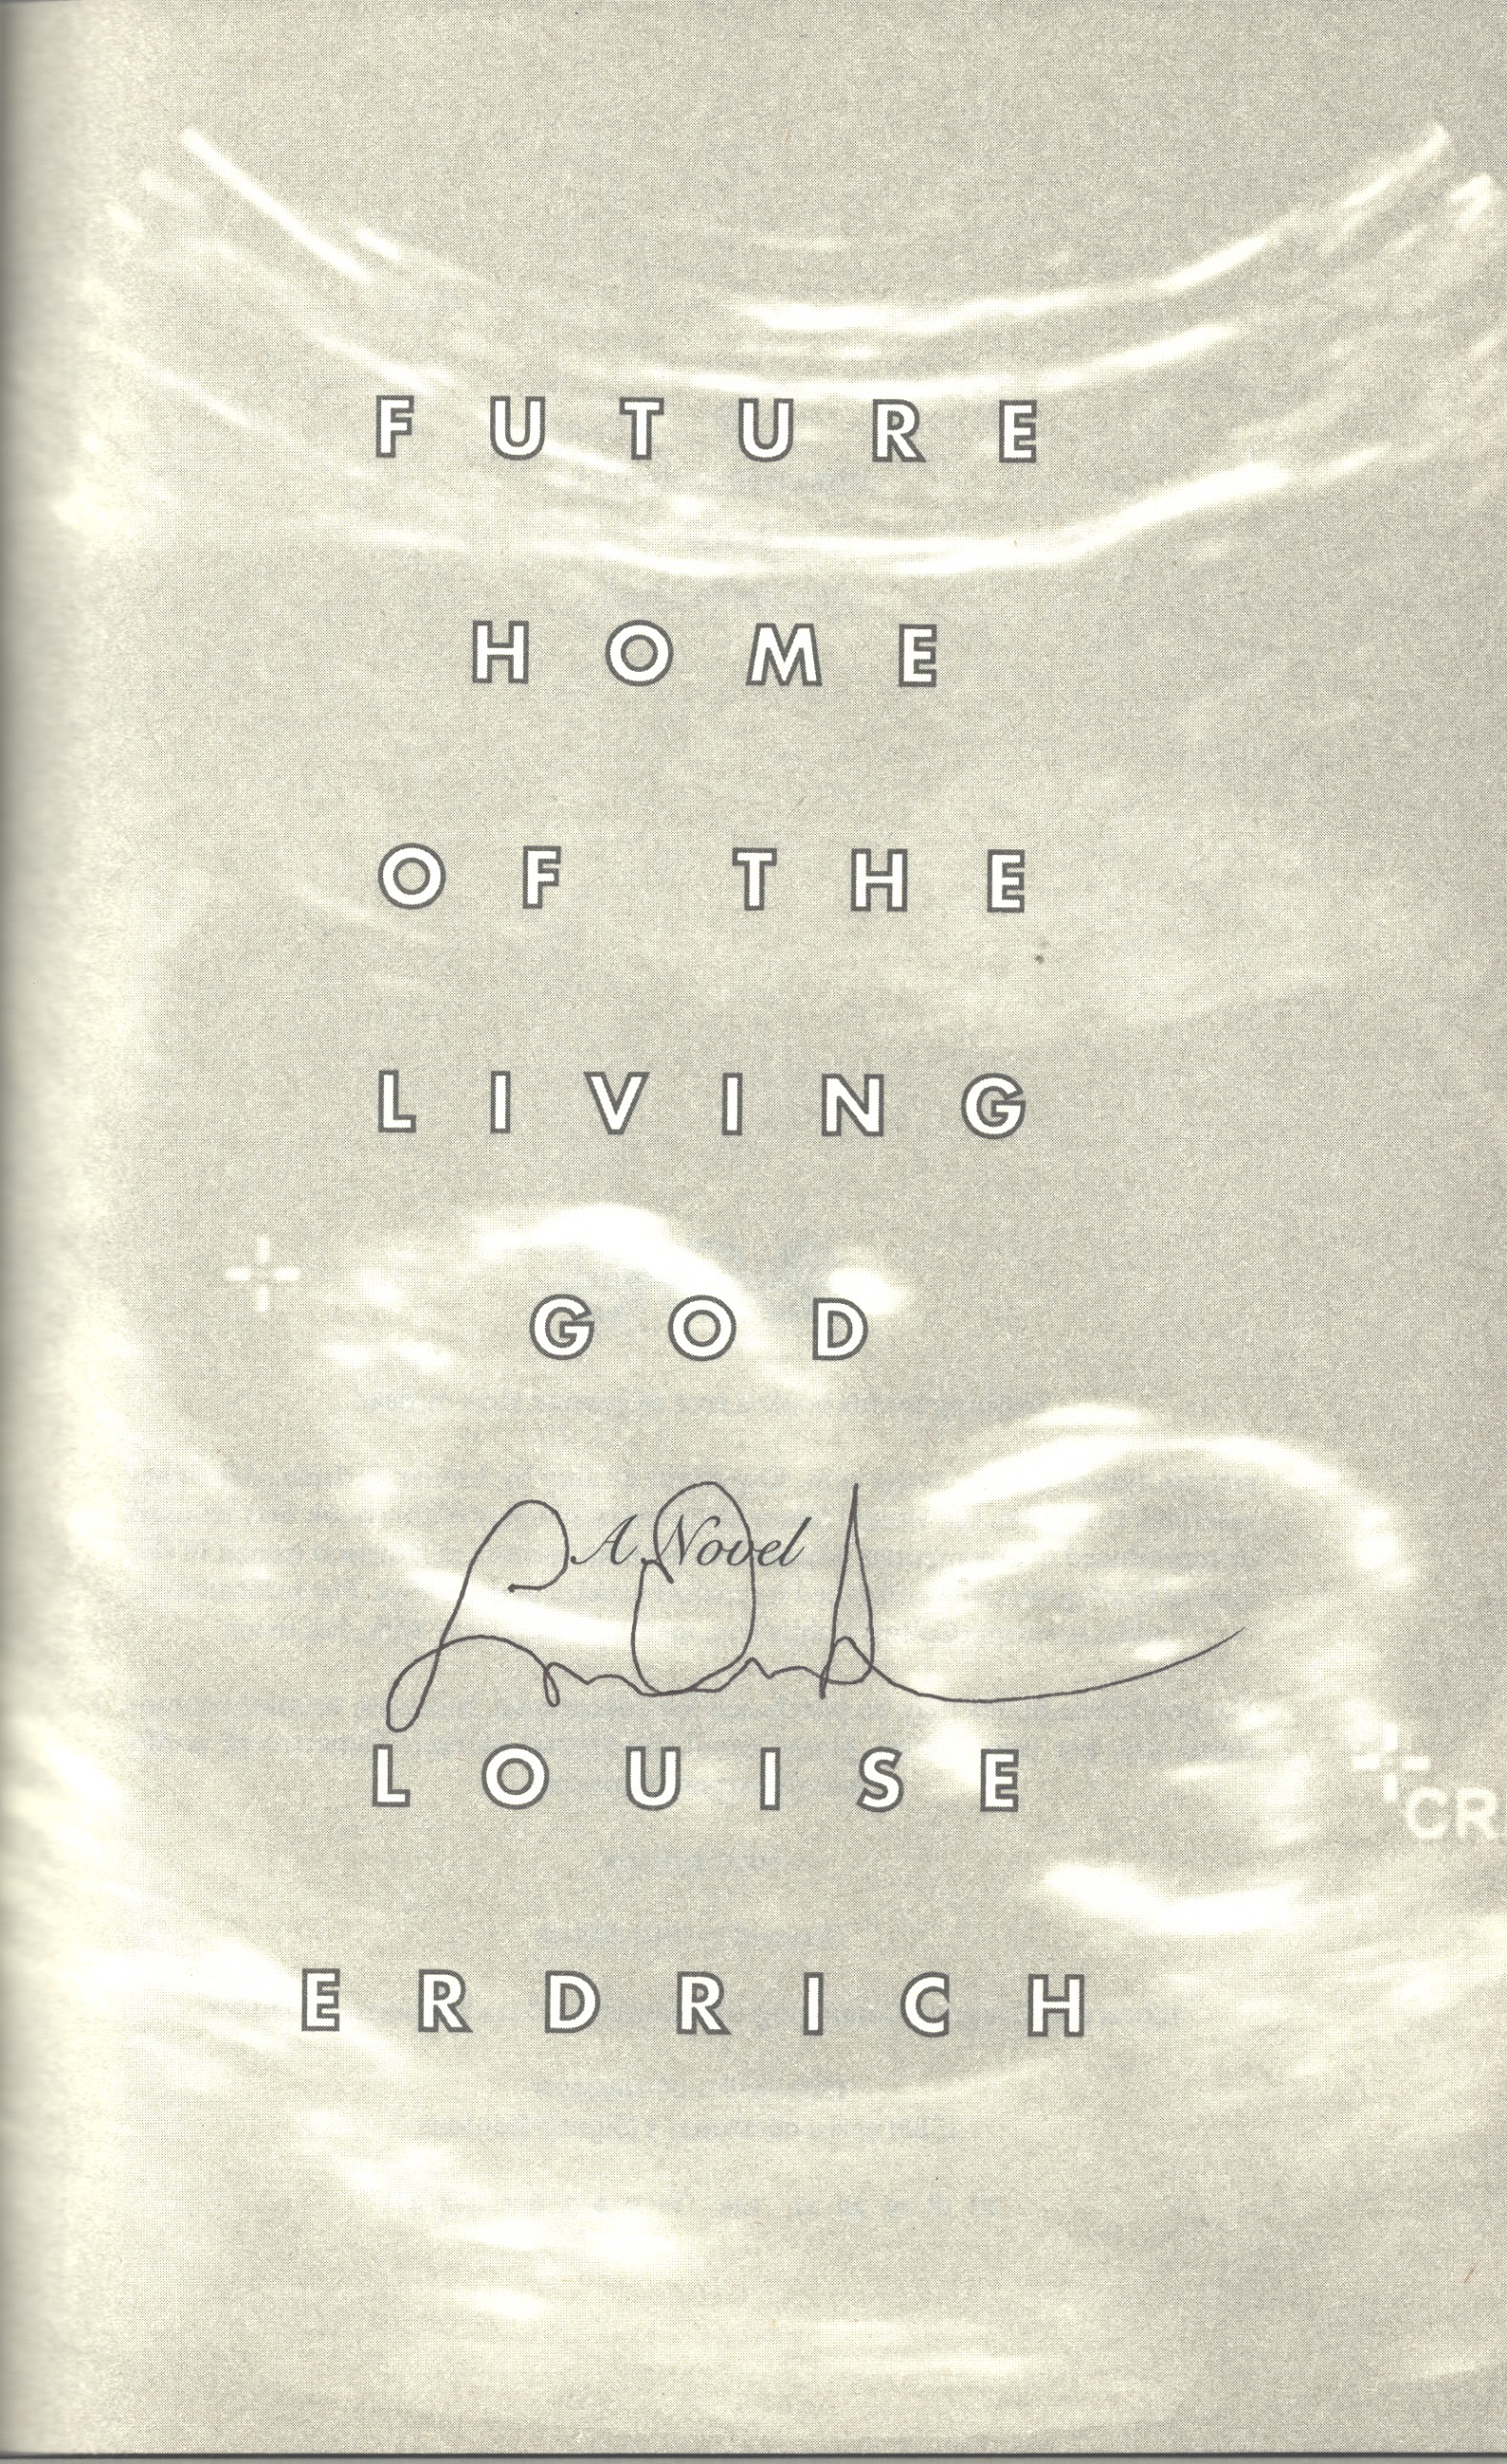 FUTURE
HOME
OF THE
LIVING
GOD
A Novel
LOUISE
CR
ERDRICH